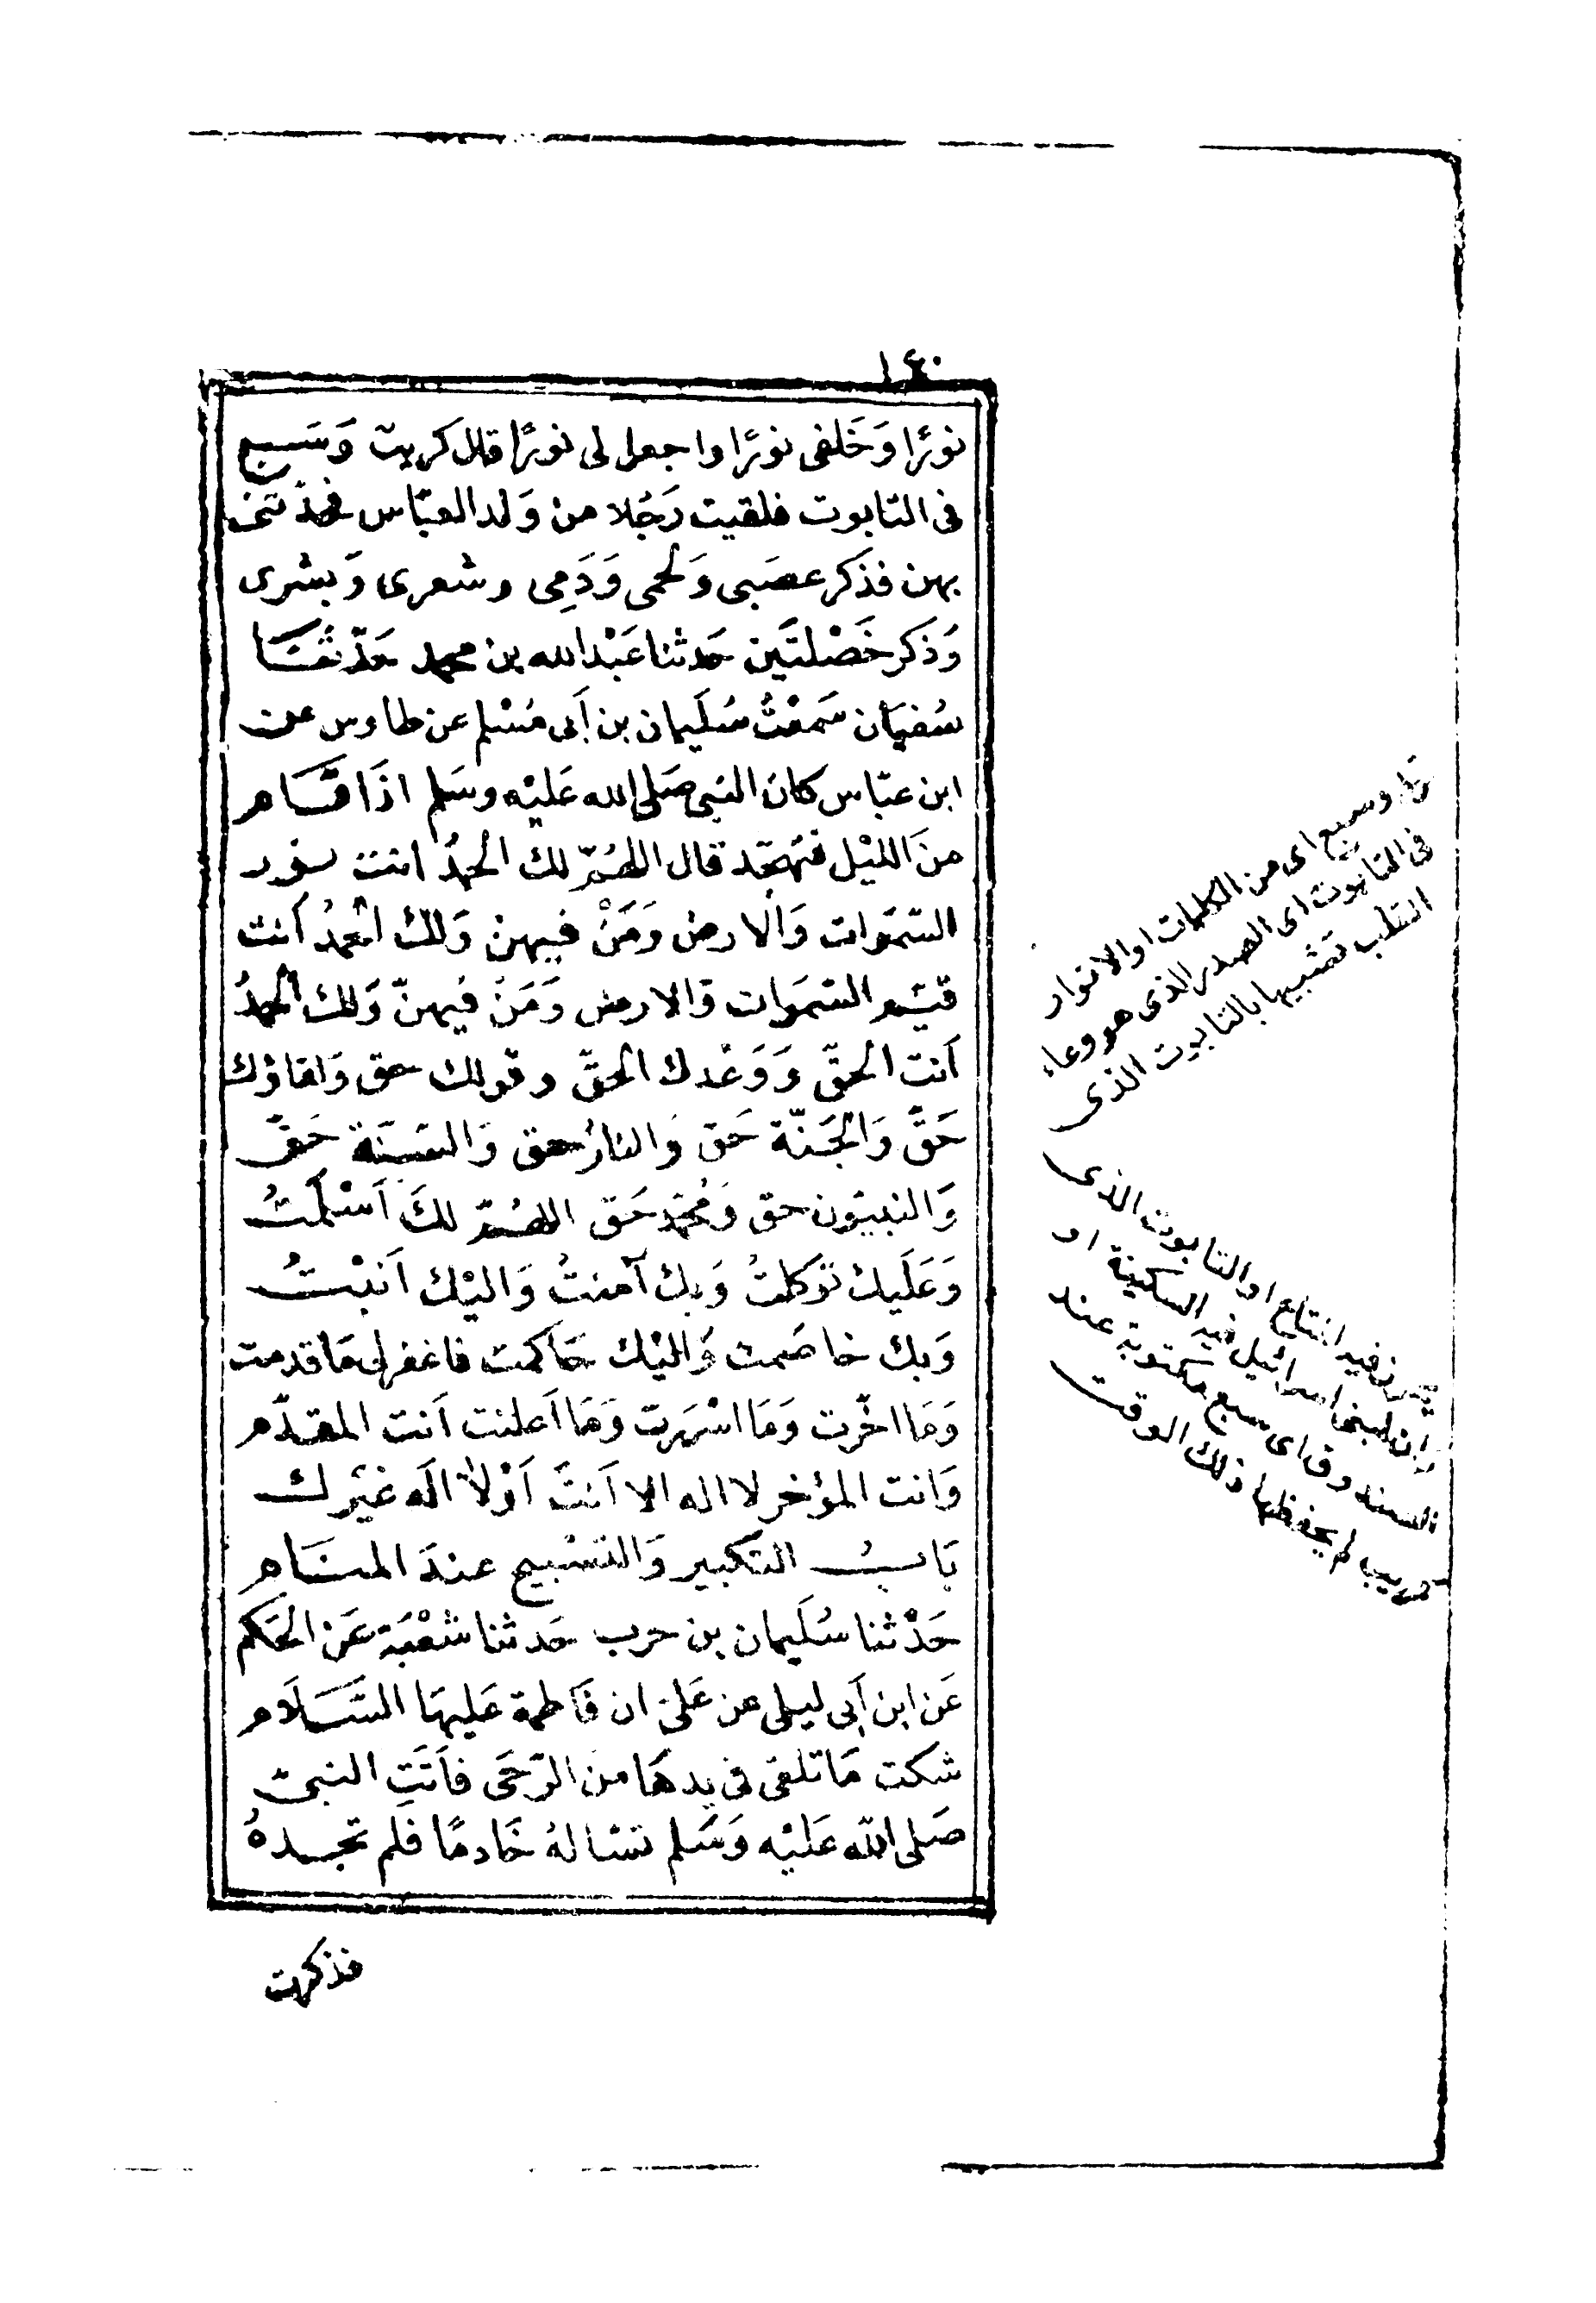 ١٤٠
نورًا وَخَلفى نورًا واجعل لى نورًا قال كريبٌ وَسَبع
فى التابوت فلقيت رَجُلا من وَلد العبّاس فحدّثنى
بهن فذكر عصَبى وَلحمى وَدَمِى وشعرى وَبشرى
وَذكر خَصْلتَين حَدثنا عَبْد الله بن محمد حَدّثنَا
سُفيَان سَمعْتُ سُلَيمان بن أَبى مُسْلم عن طاوس عن
ابن عبّاس كان النبى صَلى الله عَليْه وسَلم اذَا قَام
منَ الليْل فتهجّد قال اللهُمّ لك الحمدُ انت نور
السّمَوات وَالارض وَمَنْ فيهن وَلك الحمدُ أنت
قيّم السّمَوات وَالارض وَمَنْ فيهنّ وَلك الحمدُ
أنت الحقّ وَوَعْدك الحقّ وقولك حق وَلقاؤك
حَقّ وَالجَنّة حَق وَالنارُ حق وَالسَّاعَة حَقّ
وَالنبيّون حق وَمُحَمّد حَق اللهُمّ لكَ اَسْلَمْتُ
وَعَلَيك توَكلتُ وَبك آمنتُ وَاليْك اَنَبْتُ
وَبك خاصَمت وَاليْك حَاكمت فاغفر لى مَا قدمت
وَمَا اخّرت وَمَا اسْرَرت وَمَا أعلنت أنت المقدّم
وَانت المؤخر لا اله الا اَنتَ اَوْ لا الَه غيْرك
بَابُ التكبير وَالتسْبيح عندَ المنَام
حَدّثنا سُلَيمان بن حرب حَدثنا شعْبَة عَن الحَكم
عَن ابن أَبى ليلى عن عَلىّ ان فَاطمة عَليهَا السَّلَام
شكت مَا تلقى فى يدهَا من الرّحَى فأتَتِ النبىّ
صَلى الله عَليْه وَسَلم تسْالهُ خَادمًا فلم تجدهُ
فذكرت
وسبع اى من الكلمات او الانوار
فى التابوت اى الصدر الذى هو وعاء
القلب تشبيها بالتابوت الذى
فيه المتاع او التابوت الذى
كان لبنى اسرائيل فيه السكينة او
الصندوق اى سبع مكتوبة عند
كريب لم يحفظها ذلك الوقت